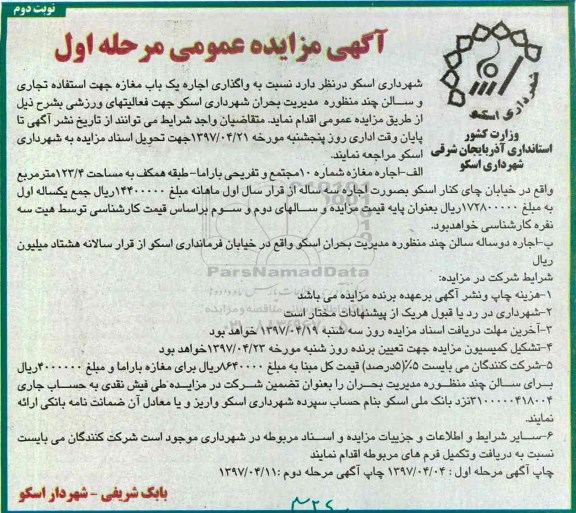 نوبت دوم
آگهی مزایده عمومی مرحله اول
شهرداری اسکو
وزارت کشور
استانداری آذربایجان شرقی
شهرداری اسکو
شهرداری اسکو درنظر دارد نسبت به واگذاری اجاره یک باب مغازه جهت استفاده تجاری
و سالن چند منظوره مدیریت بحران شهرداری اسکو جهت فعالیتهای ورزشی بشرح ذیل
از طریق مزایده عمومی اقدام نماید. متقاضیان واجد شرایط می توانند از تاریخ نشر آگهی تا
پایان وقت اداری روز پنجشنبه مورخه ۱۳۹۷/۰۴/۲۱جهت تحویل اسناد مزایده به شهرداری
اسکو مراجعه نمایند.
الف-اجاره مغازه شماره ۱۰مجتمع و تفریحی باراما-طبقه همکف به مساحت ۱۲۳/۴مترمربع
واقع در خیابان چای کنار اسکو بصورت اجاره سه ساله از قرار سال اول ماهانه مبلغ ۱۴۴۰۰۰۰۰ریال جمع یکساله اول
به مبلغ ۱۷۲۸۰۰۰۰۰ریال بعنوان پایه قیمت مزایده و سالهای دوم و سوم براساس قیمت کارشناسی توسط هیت سه
نفره کارشناسی خواهدبود.
ب-اجاره دوساله سالن چند منظوره مدیریت بحران اسکو واقع در خیابان فرمانداری اسکو از قرار سالانه هشتاد میلیون
ریال
ParsNamadData
شرایط شرکت در مزایده:
۱-هزینه چاپ ونشر آگهی برعهده برنده مزایده می باشد
۲-شهرداری در رد یا قبول هریک از پیشنهادات مختار است
۳-آخرین مهلت دریافت اسناد مزایده روز سه شنبه ۱۳۹۷/۰۴/۱۹ خواهد بود
۴-تشکیل کمیسیون مزایده جهت تعیین برنده روز شنبه مورخه ۱۳۹۷/۰۴/۲۳خواهد بود
۵-شرکت کنندگان می بایست ۵٪(۵درصد) قیمت کل مبنا به مبلغ ۸۶۴۰۰۰۰ریال برای مغازه باراما و مبلغ ۴۰۰۰۰۰۰ریال
برای سالن چند منظوره مدیریت بحران را بعنوان تضمین شرکت در مزایده طی فیش نقدی به حساب جاری
۳۱۰۰۰۰۰۴۱۸۰۰۴نزد بانک ملی اسکو بنام حساب سپرده شهرداری اسکو واریز و یا معادل آن ضمانت نامه بانکی ارائه
نمایند.
۶-سایر شرایط و اطلاعات و جزییات مزایده و اسناد مربوطه در شهرداری موجود است شرکت کنندگان می بایست
نسبت به دریافت وتکمیل فرم های مربوطه اقدام نمایند
چاپ آگهی مرحله اول : ۱۳۹۷/۰۴/۰۴ چاپ آگهی مرحله دوم :۱۳۹۷/۰۴/۱۱
بابک شریفی - شهردار اسکو